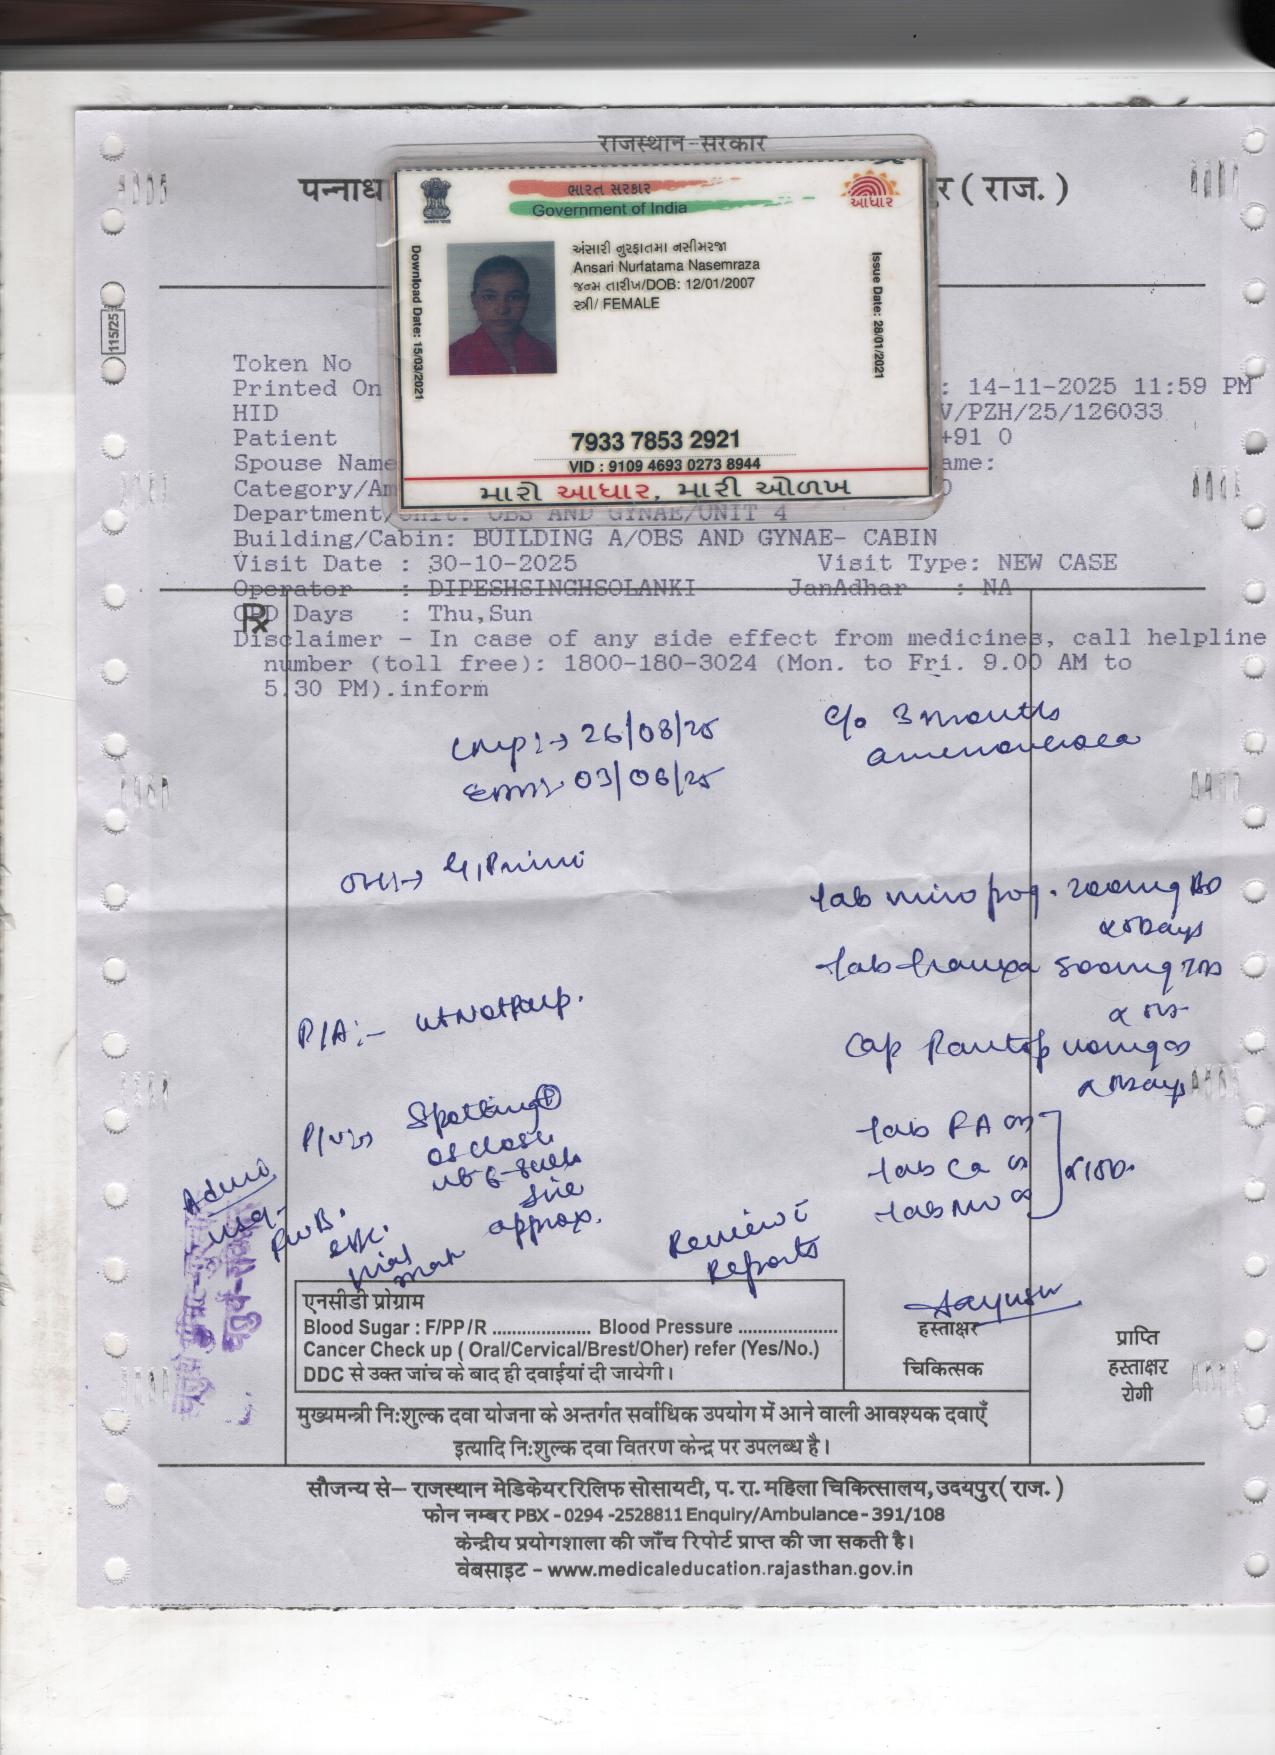 राजस्थान-सरकार
पन्नाध
र ( राज. )
ભારત સરકાર
Government of India
આધાર
અંસારી નુરફાતમા નસીમરજા
Ansari Nurfatama Nasemraza
જન્મ તારીખ/DOB: 12/01/2007
સ્ત્રી/ FEMALE
Download Date: 15/03/2021
Issue Date: 28/01/2021
7933 7853 2921
VID : 9109 4693 0273 8944
મારો આધાર, મારી ઓળખ
115/25
Token No
Printed On : 14-11-2025 11:59 PM
HID V/PZH/25/126033
Patient +91 0
Spouse Name ame:
Category/Am 0
Department/Unit: OBS AND GYNAE/UNIT 4
Building/Cabin: BUILDING A/OBS AND GYNAE- CABIN
Visit Date : 30-10-2025 Visit Type: NEW CASE
Operator : DIPESHSINGHSOLANKI JanAdhar : NA
OPD Days : Thu,Sun
Rx
Disclaimer - In case of any side effect from medicines, call helpline
number (toll free): 1800-180-3024 (Mon. to Fri. 9.00 AM to
5.30 PM).inform
LMP:→ 26/08/25
03/06/25
c/o 3 months
amenorrhoea
OH:→ G1 Primi
tab microprog. 200mg BD
x 5 Days
tab tranexa 500mg TDS
Cap Pantop 40mg OD
x 5 Days
P/A:-
P/V:→ Spotting ⊕
os closed
6-8 wks
size
approx.
tab FA OD
tab Ca OD
Review c̄
Reports
एनसीडी प्रोग्राम
Blood Sugar : F/PP/R .................... Blood Pressure ....................
Cancer Check up ( Oral/Cervical/Brest/Oher) refer (Yes/No.)
DDC से उक्त जांच के बाद ही दवाईयां दी जायेगी।
हस्ताक्षर
चिकित्सक
प्राप्ति
हस्ताक्षर
रोगी
मुख्यमन्त्री निःशुल्क दवा योजना के अन्तर्गत सर्वाधिक उपयोग में आने वाली आवश्यक दवाएँ
इत्यादि निःशुल्क दवा वितरण केन्द्र पर उपलब्ध है।
सौजन्य से– राजस्थान मेडिकेयर रिलिफ सोसायटी, प. रा. महिला चिकित्सालय, उदयपुर( राज. )
फोन नम्बर PBX - 0294 -2528811 Enquiry/Ambulance - 391/108
केन्द्रीय प्रयोगशाला की जाँच रिपोर्ट प्राप्त की जा सकती है।
वेबसाइट – www.medicaleducation.rajasthan.gov.in